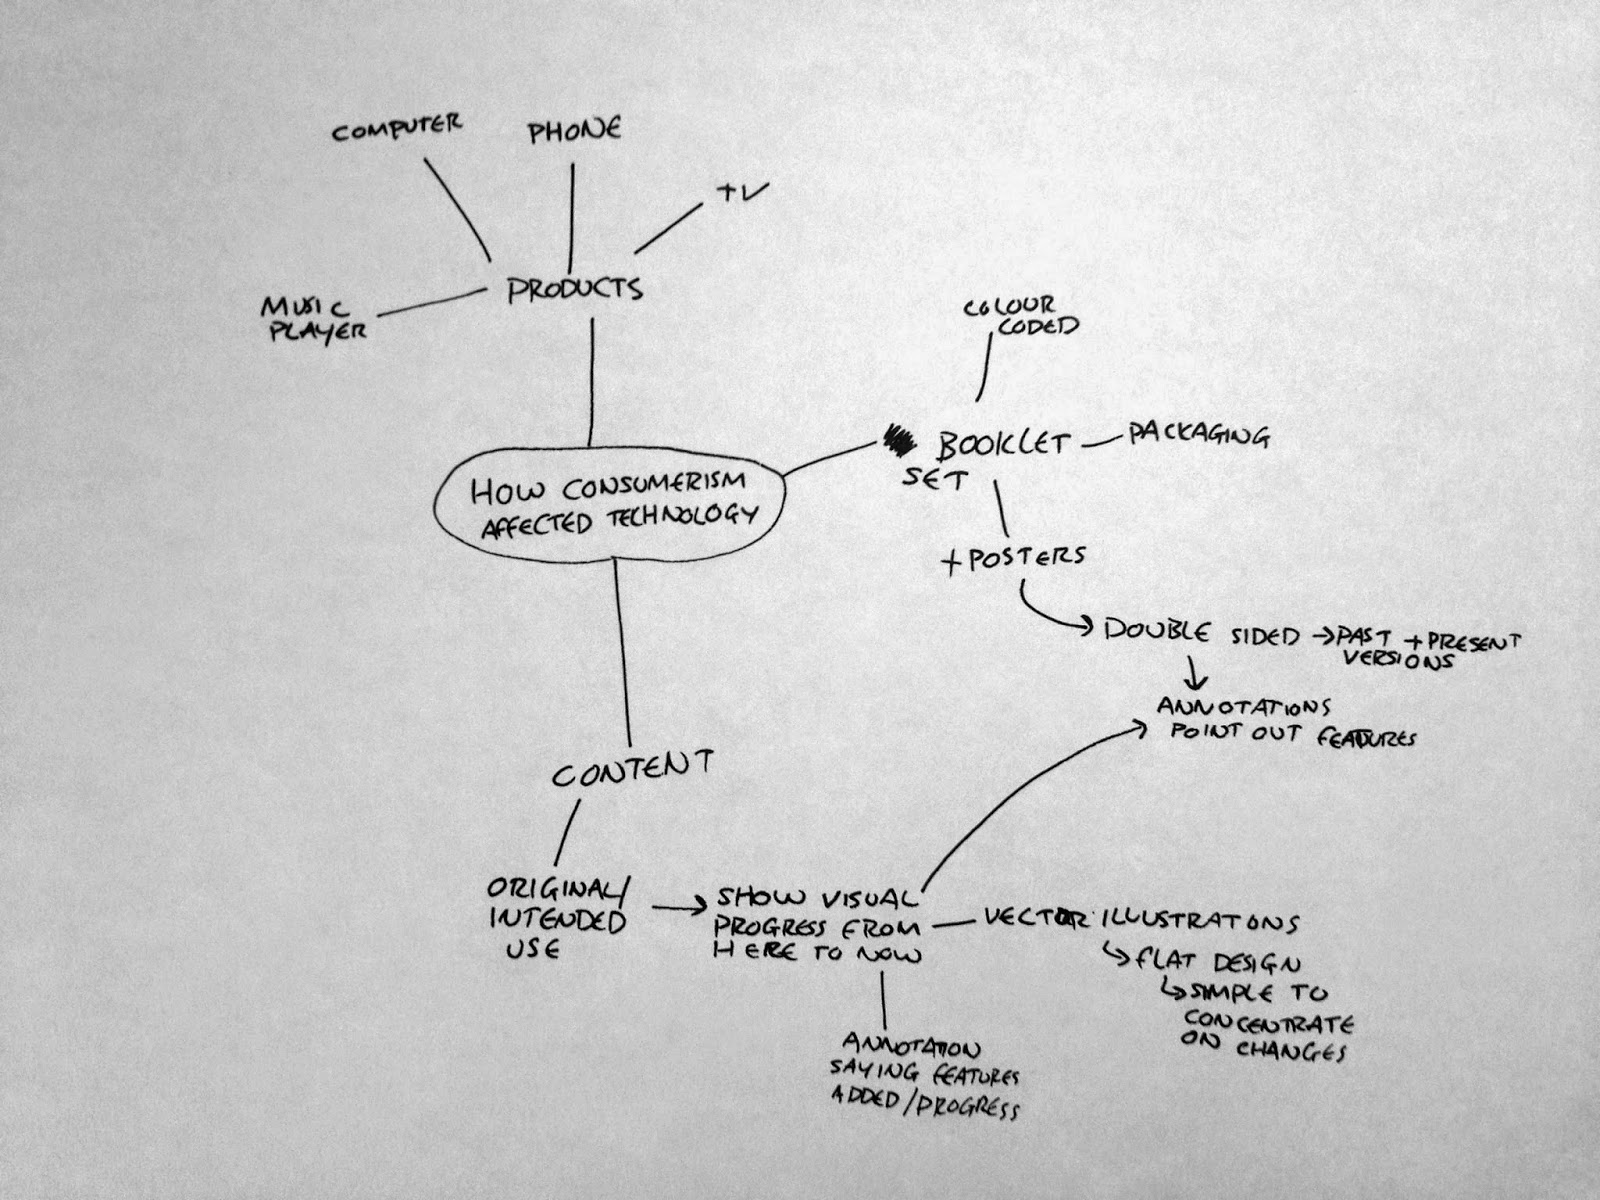 COMPUTER
PHONE
TV
MUSIC
PLAYER
PRODUCTS
COLOUR
CODED
BOOKLET
SET
PACKAGING
HOW CONSUMERISM
AFFECTED TECHNOLOGY
+POSTERS
DOUBLE SIDED →PAST + PRESENT
VERSIONS
ANNOTATIONS
POINT OUT FEATURES
CONTENT
ORIGINAL/
INTENDED
USE
SHOW VISUAL
PROGRESS FROM
HERE TO NOW
VECTOR ILLUSTRATONS
FLAT DESIGN
SIMPLE TO
CONCENTRATE
ON CHANGES
ANNOTATION
SAYING FEATURES
ADDED/PROGRESS